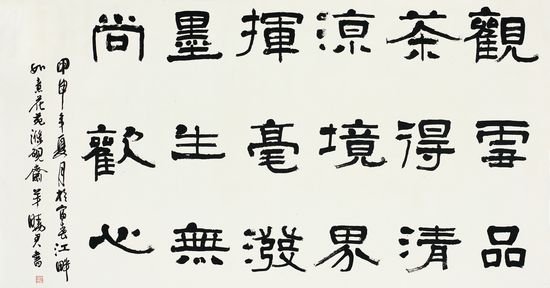 觀雲品
茶得清
涼境界
揮毫潑
墨生無
尚歡心
甲申年夏月於富春江畔
如意花苑滌硯齋羊曉君書